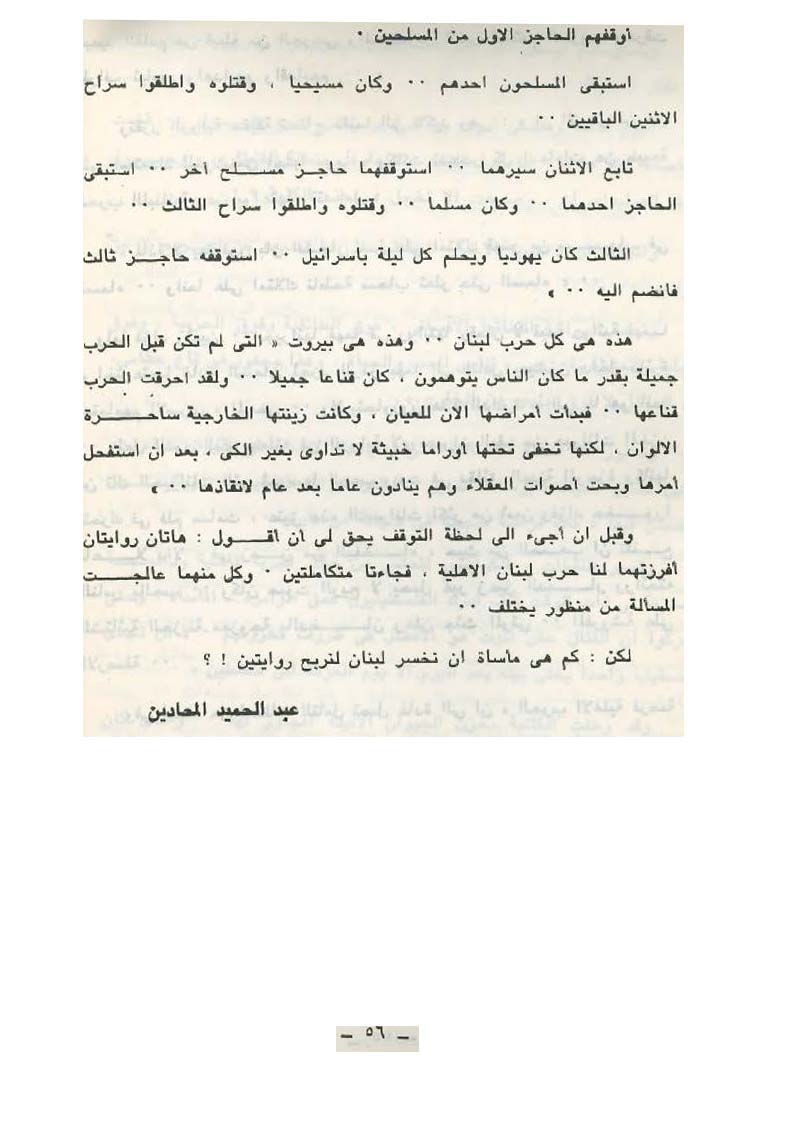 أوقفهم الحاجز الاول من المسلحين ٠
استبقى المسلحون احدهم ٠٠ وكان مسيحيا ، وقتلوه واطلقوا سراح
الاثنين الباقيين ٠٠
تابع الاثنان سيرهما ٠٠ استوقفهما حاجز مسلح آخر ٠٠ استبقى
الحاجز احدهما ٠٠ وكان مسلما ٠٠ وقتلوه واطلقوا سراح الثالث ٠٠
الثالث كان يهوديا ويحلم كل ليلة باسرائيل ٠٠ استوقفه حاجز ثالث
فانضم اليه ٠٠ »
هذه هى كل حرب لبنان ٠٠ وهذه هى بيروت « التى لم تكن قبل الحرب
جميلة بقدر ما كان الناس يتوهمون ، كان قناعا جميلا ٠٠ ولقد احرقت الحرب
قناعها ٠٠ فبدأت أمراضها الان للعيان ، وكانت زينتها الخارجية ساحرة
الالوان ، لكنها تخفى تحتها أوراما خبيثة لا تداوى بغير الكى ، بعد ان استفحل
أمرها وبحت أصوات العقلاء وهم ينادون عاما بعد عام لانقاذها ٠٠ »
وقبل ان أجىء الى لحظة التوقف يحق لى ان أقول : هاتان روايتان
أفرزتهما لنا حرب لبنان الاهلية ، فجاءتا متكاملتين ٠ وكل منهما عالجت
المسألة من منظور يختلف ٠٠
لكن : كم هى مأساة ان نخسر لبنان لنربح روايتين ! ؟
عبد الحميد المحادين
ـ ٥٦ ـ